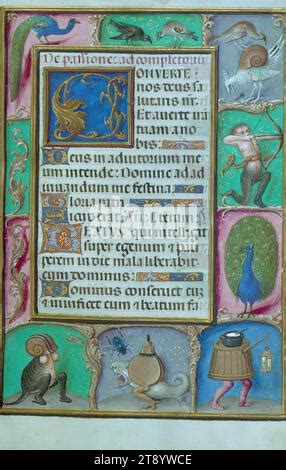 De passione: ad completoriu
CONVERTE
nos deus sa
lutaris nr̄.
Et auerte
iram
Deus in adiutorium me
um intende: Domine ad ad
iuuandum me festina
Gloria
Sicut erat
BEATUS qui intelligit
super egenum et pau
perem in die mala liberabit
eum dominus.
Dominus conseruet eum
et uiuificet eum et beatum fa
alamy
Image ID: 2T81YWCE
www.alamy.com